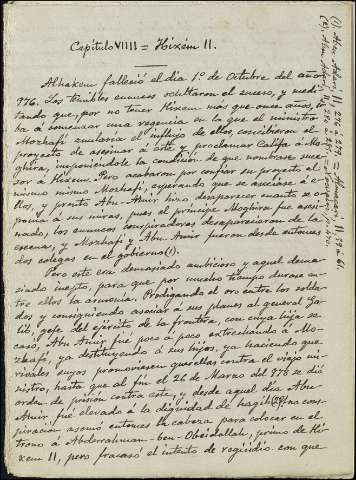 Capítulo VIIII = Hixém II.
Alhakem falleció el día 1º de Octubre del año
976. Los temibles eunucos ocultaron el suceso, y medi-
tando que, por no tener Hixem más que once años, i-
ba á comenzar una regencia en la que el ministro
Mozhafi anularia el influjo de ellos, concibieron el
proyecto de asesinar á este y proclamar Califa á Mo-
ghira, imponiéndole la condición de que nombrase suce-
sor á Hixem. Pero acabaron por confiar su proyecto al
mismo mismo Mozhafi, esperando que se asociase á e-
llos, y pronto Abu-Amir hizo desaparecer cuanto se o-
ponia á sus miras, pues el príncipe Moghira fue asesi-
nado, los eunucos conspiradores desaparecieron de la
escena, y Mozhafi y Abu Amir fueron desde entonces
dos colegas en el gobierno (1).
Pero este era demasiado ambicioso y aquel dema-
siado inepto, para que por mucho tiempo durase en-
tre ellos la armonía. Prodigando el oro entre los solda-
dos y consiguiendo asociar á sus planes al general Ga-
lib, gefe del ejército de la frontera, con cuya hija se
casó, Abu Amir fué poco á poco estrechando á Mo-
zhafi, ya destituyendo á sus hijos, ya haciendo que
rivales suyos promoviesen querellas contra el viejo mi-
nistro, hasta que al fin el 26 de Marzo del 978 se dió
orden de prisión contra este, y desde aquel día Abu-
Amir fué elevado á la dignidad de hagib (2). Una cons-
piración asomó entonces la cabeza para colocar en el
trono á Abderrahman-ben-Obeidallah, primo de Hi-
xem II, pero fracasó el intento de regicidio con que
(1) Aben Adari, II, 278 á 279 = Almaccari, II, 59 á 61